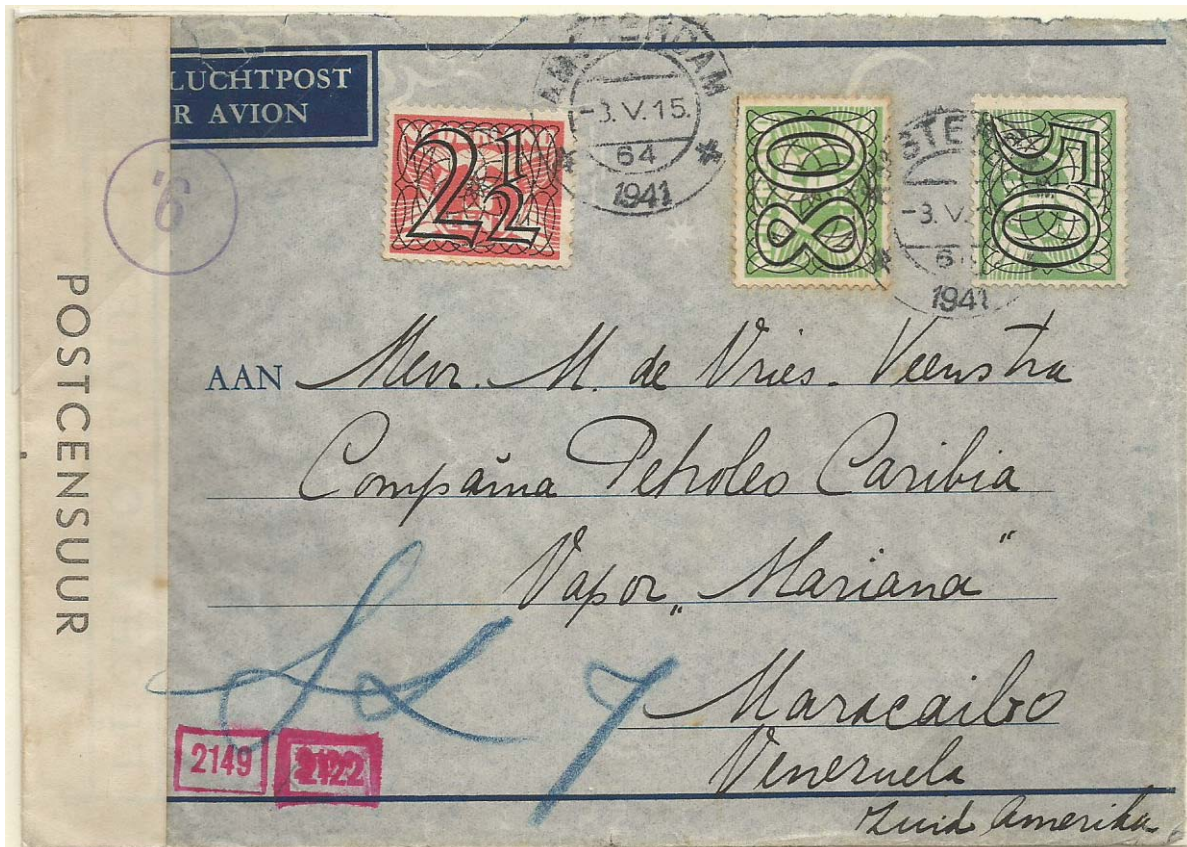 LUCHTPOST
R AVION
AMSTERDAM
-3.V.15.
64
1941
2½
80
50
-3.V.
6
1941
6.
POSTCENSUUR
AAN Mevr. M. de Vries-Veenstra
Compãina Petroleo Caribia
Vapor „Mariana"
Maracaibo
Venezuela
Zuid Amerika
7
2149
2122